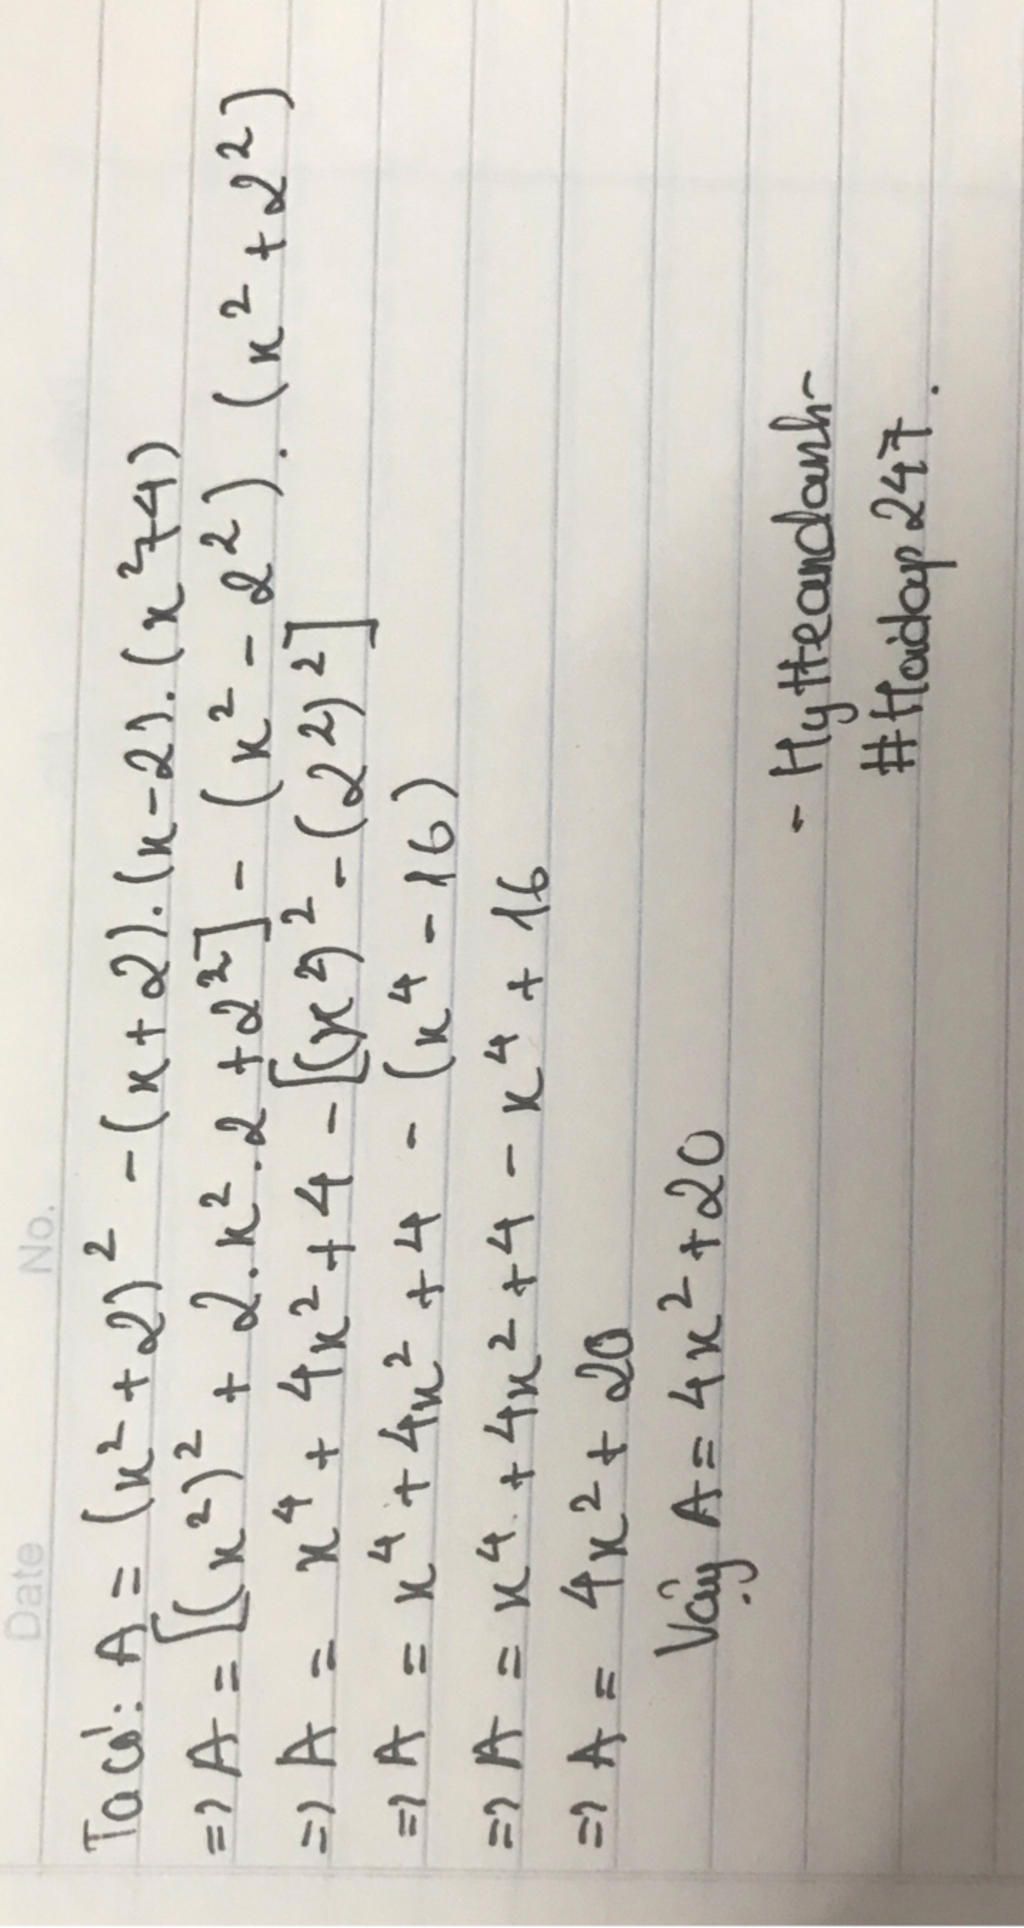 Date No.
Ta có: A = (x² + 2)² - (x + 2).(x - 2).(x² + 4)
=> A = [(x²)² + 2.x².2 + 2²] - (x² - 2²).(x² + 2²)
=> A = x⁴ + 4x² + 4 - [(x²)² - (2²)²]
=> A = x⁴ + 4x² + 4 - (x⁴ - 16)
=> A = x⁴ + 4x² + 4 - x⁴ + 16
=> A = 4x² + 20
Vậy A = 4x² + 20
- Hytteandanh -
#Hoidap247.